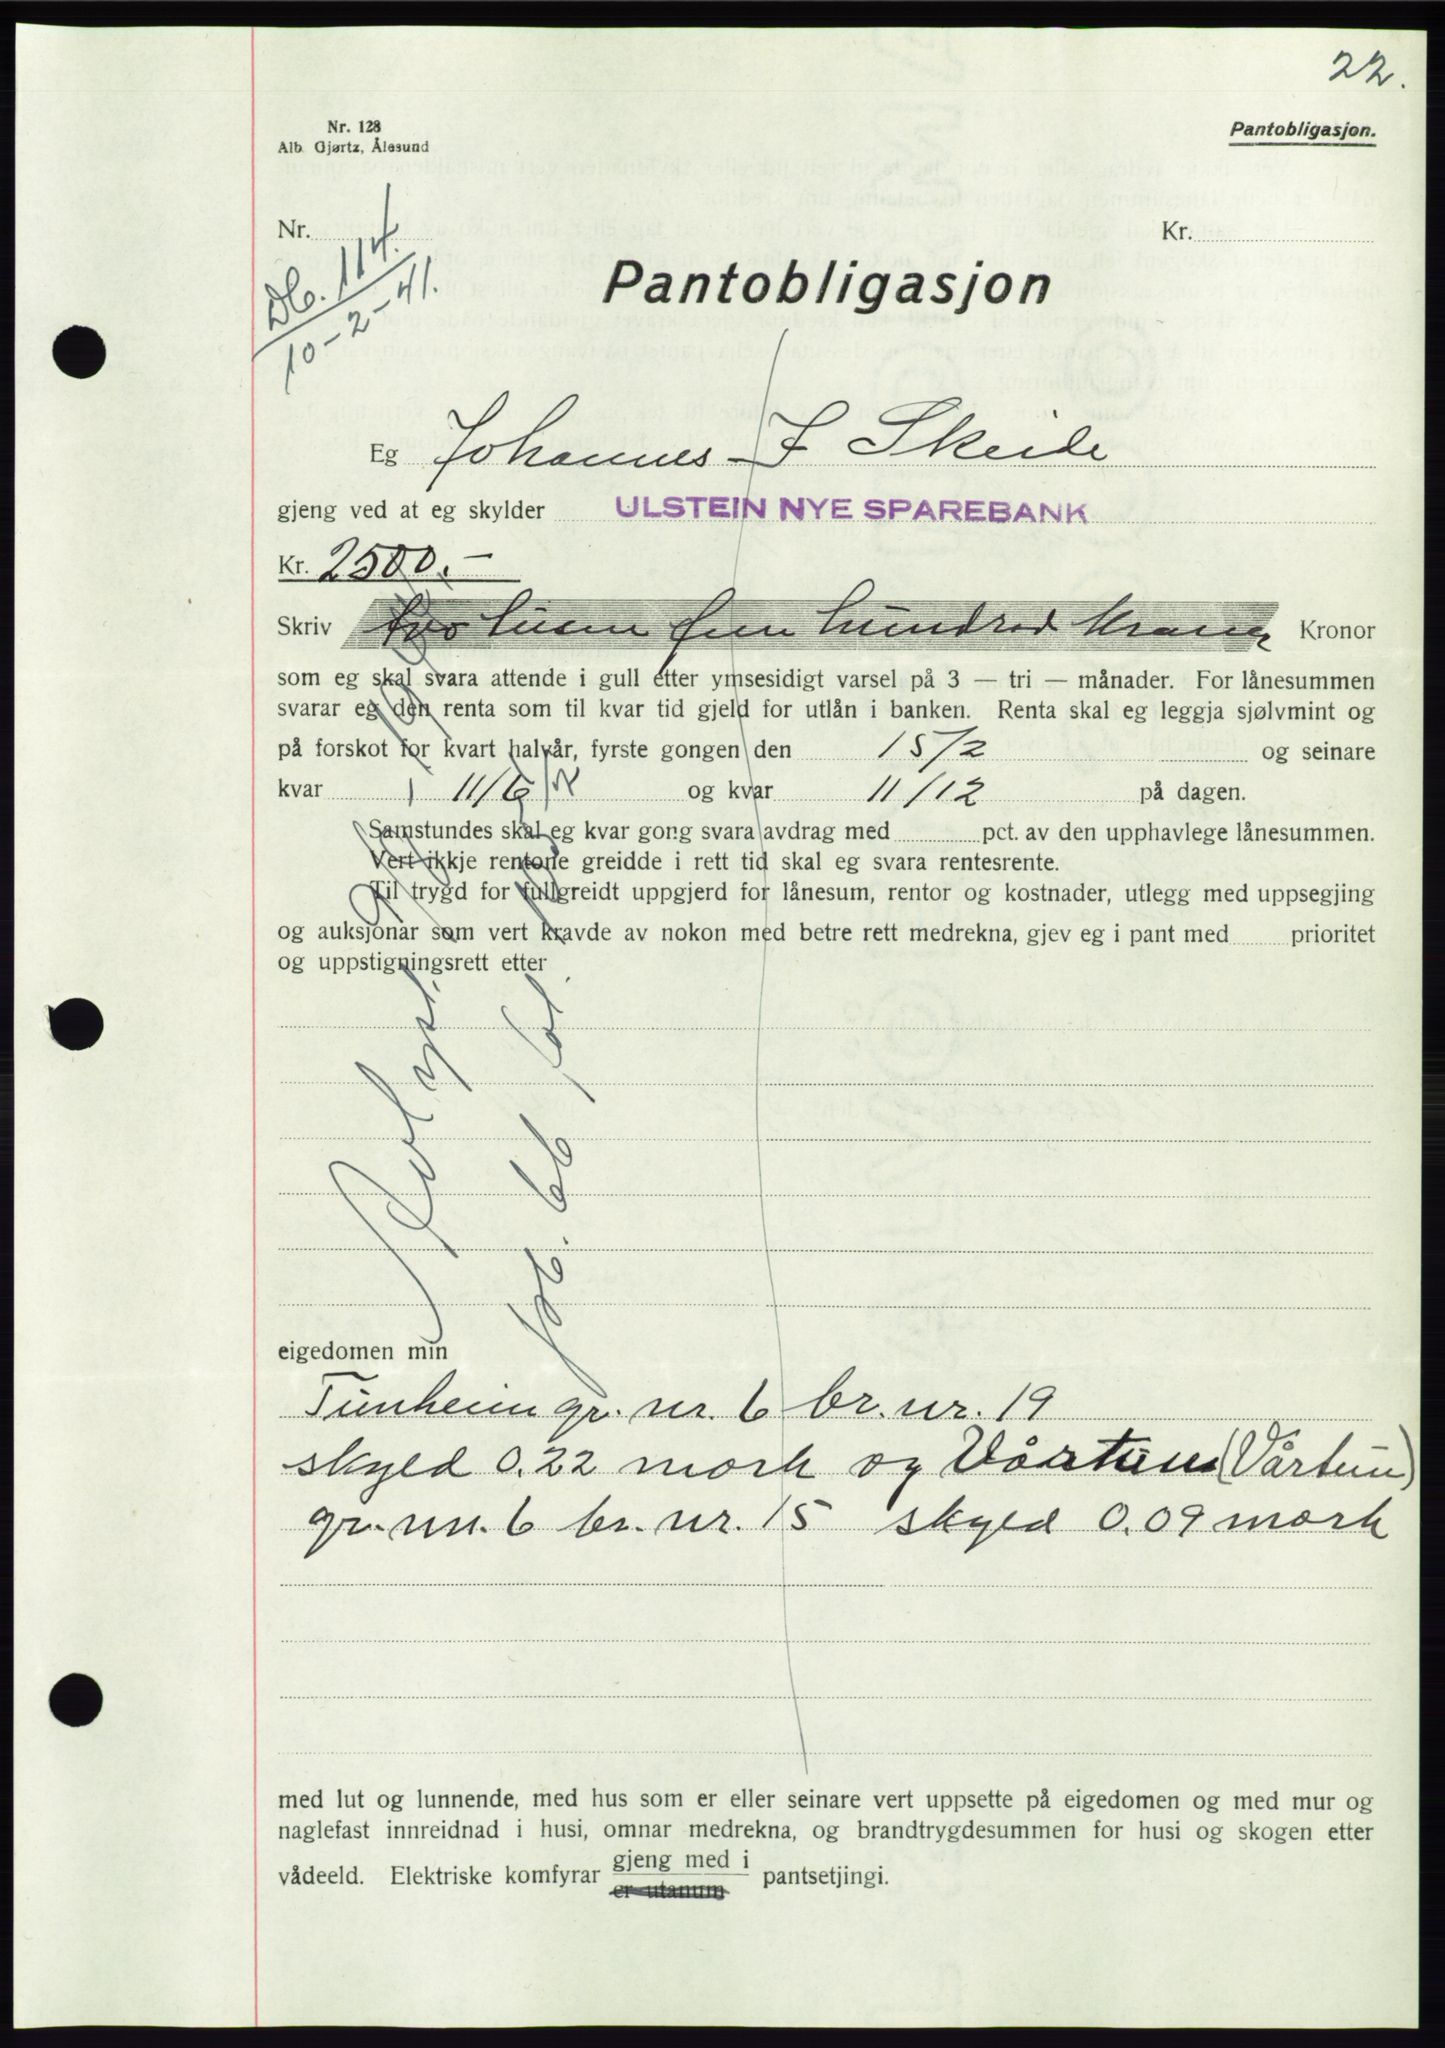 22.
Nr. 128
Alb. Gjørtz, Ålesund
Pantobligasjon.
Nr.
Kr.
Db. 114.
10-2-41.
Pantobligasjon
Eg Johannes J Skeide
gjeng ved at eg skylder ULSTEIN NYE SPAREBANK
Kr. 2500.-
Skriv tvo tusen fem hundred kroner Kronor
som eg skal svara attende i gull etter ymsesidigt varsel på 3 — tri — månader. For lånesummen
svarar eg den renta som til kvar tid gjeld for utlån i banken. Renta skal eg leggja sjølvmint og
på forskot for kvart halvår, fyrste gongen den 15/2 og seinare
kvar 11/6 og kvar 11/12 på dagen.
Samstundes skal eg kvar gong svara avdrag med pct. av den upphavlege lånesummen.
Vert ikkje rentone greidde i rett tid skal eg svara rentesrente.
Til trygd for fullgreidt uppgjerd for lånesum, rentor og kostnader, utlegg med uppsegjing
og auksjonar som vert kravde av nokon med betre rett medrekna, gjev eg i pant med prioritet
og uppstigningsrett etter
eigedomen min
Tunheim gr. nr. 6 br. nr. 19
skyld 0.22 mork og Vårtun (Vårtun)
gr. nr. 6 br. nr. 15 skyld 0.09 mork
med lut og lunnende, med hus som er eller seinare vert uppsette på eigedomen og med mur og
naglefast innreidnad i husi, omnar medrekna, og brandtrygdesummen for husi og skogen etter
vådeeld. Elektriske komfyrar gjeng med i er utanum pantsetjingi.